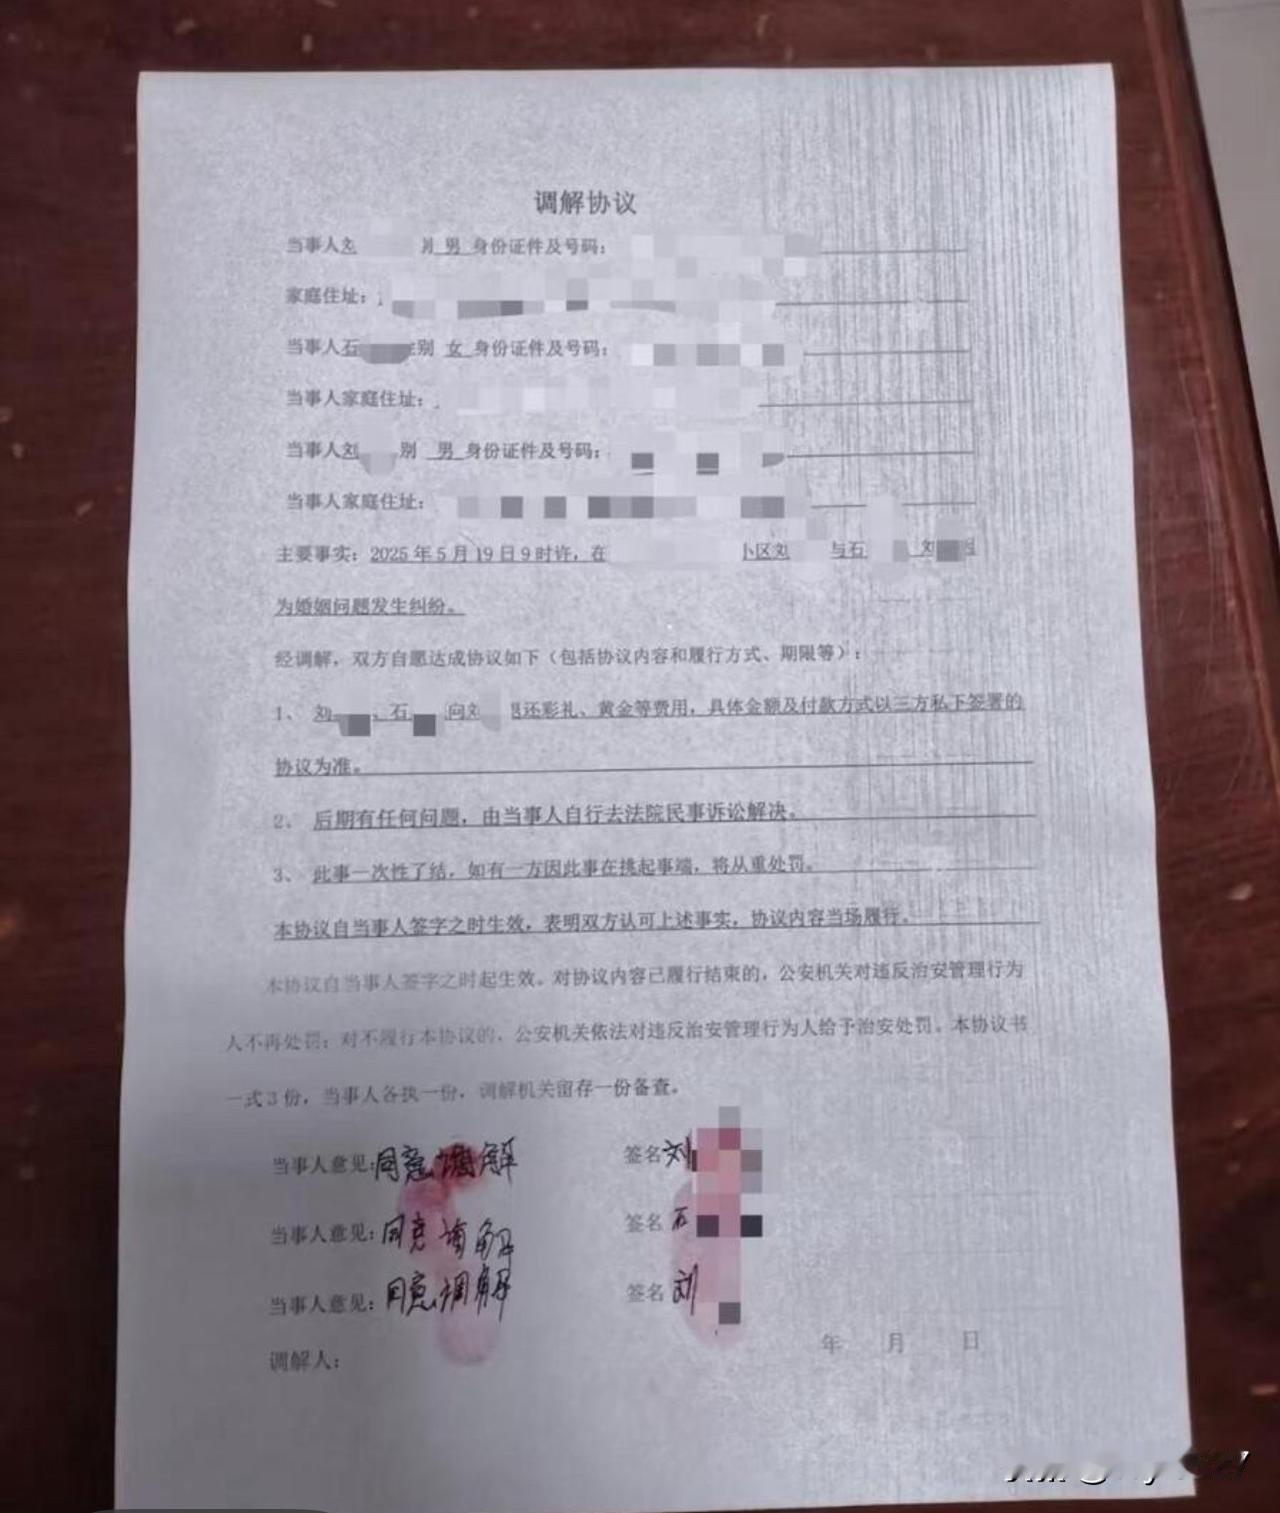 调解协议
当事人刘 男 身份证件及号码：
家庭住址：
当事人石 别 女 身份证件及号码：
当事人家庭住址：
当事人刘 别 男 身份证件及号码：
当事人家庭住址：
主要事实：2025年5月19日9时许，在 小区刘 与石 刘
为婚姻问题发生纠纷。
经调解，双方自愿达成协议如下（包括协议内容和履行方式、期限等）：
1、 刘 、石 向刘 退还彩礼、黄金等费用，具体金额及付款方式以三方私下签署的
协议为准。
2、 后期有任何问题，由当事人自行去法院民事诉讼解决。
3、 此事一次性了结，如有一方因此事在挑起事端，将从重处罚。
本协议自当事人签字之时生效，表明双方认可上述事实，协议内容当场履行。
本协议自当事人签字之时起生效。对协议内容已履行结束的，公安机关对违反治安管理行为
人不再处罚；对不履行本协议的，公安机关依法对违反治安管理行为人给予治安处罚。本协议书
一式3份，当事人各执一份，调解机关留存一份备查。
当事人意见：同意调解 签名 刘
当事人意见：同意调解 签名 石
当事人意见：同意调解 签名 刘
调解人：
年 月 日